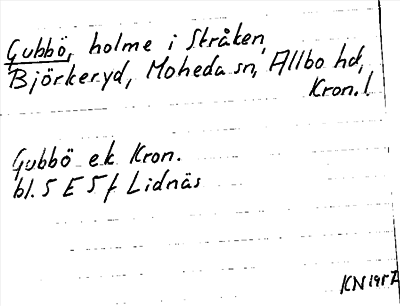 Gubbö, holme i Stråken,
Björkeryd, Moheda sn, Allbo hd,
Kron. l
Gubbö ek Kron.
bl. 5 E 5 f Lidnäs
KN 1957